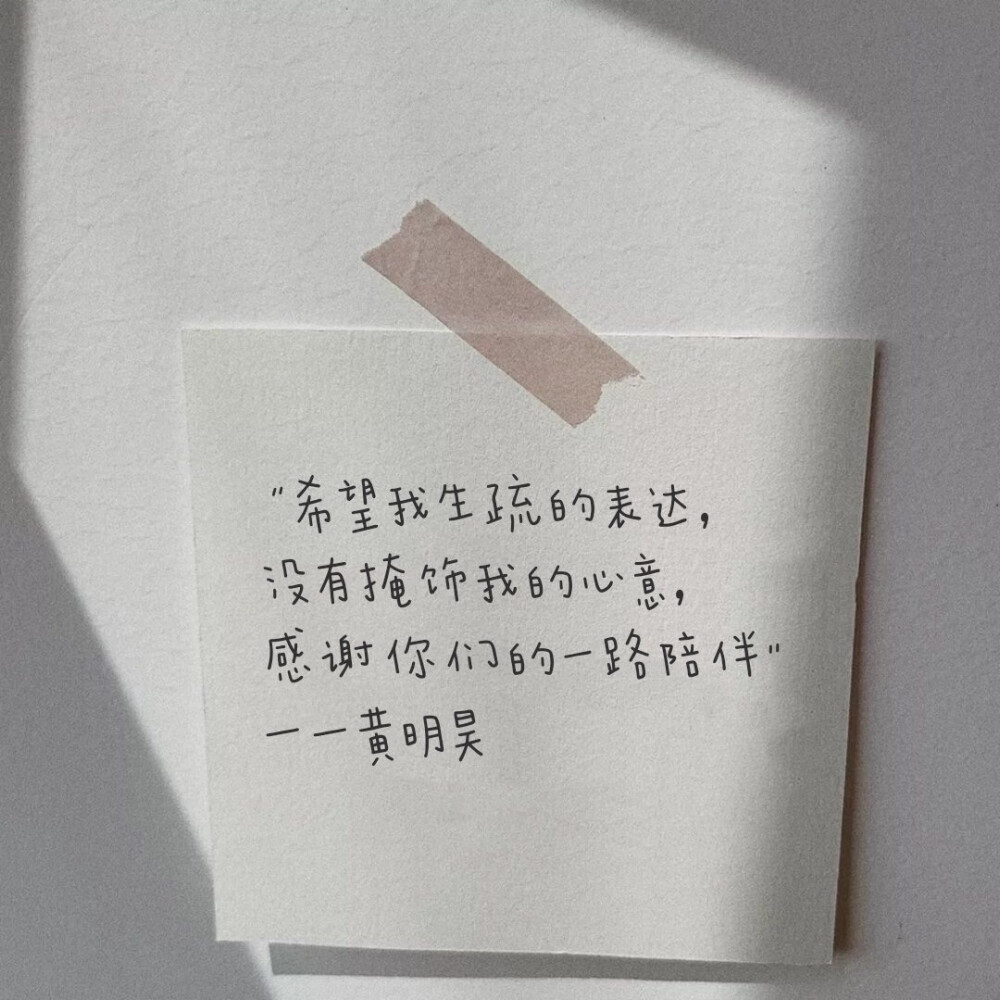 "希望我生疏的表达，
没有掩饰我的心意，
感谢你们的一路陪伴"
一一黄明昊